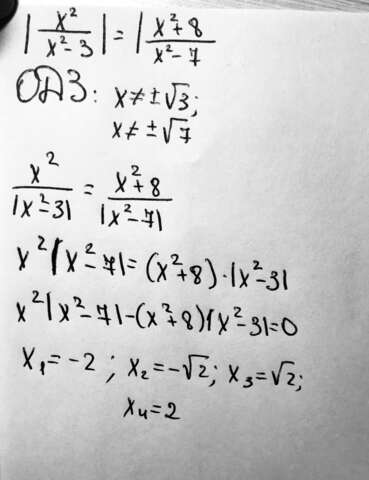 |x²/(x²-3)| = |(x²+8)/(x²-7)
ОДЗ: x≠±√3;
x≠±√7
x²/|x²-3| = (x²+8)/|x²-7|
x²|x²-7|=(x²+8)·|x²-3|
x²|x²-7|-(x²+8)|x²-3|=0
x₁=-2; x₂=-√2; x₃=√2;
x₄=2